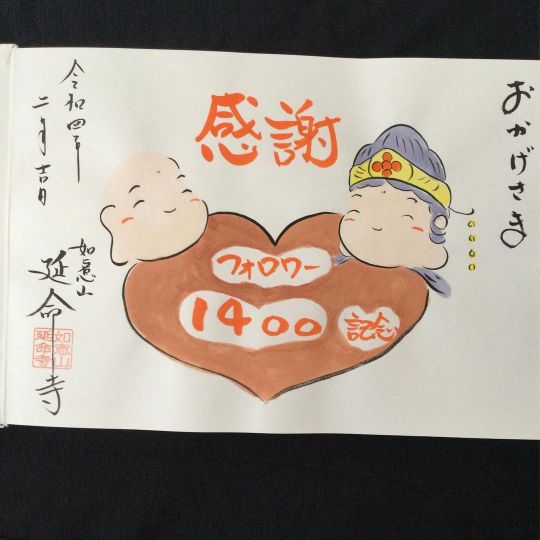 おかげさま
感謝
フォロワー
1400
記念
令和四年
二月吉日
如意山
延命寺
如意山
延命寺